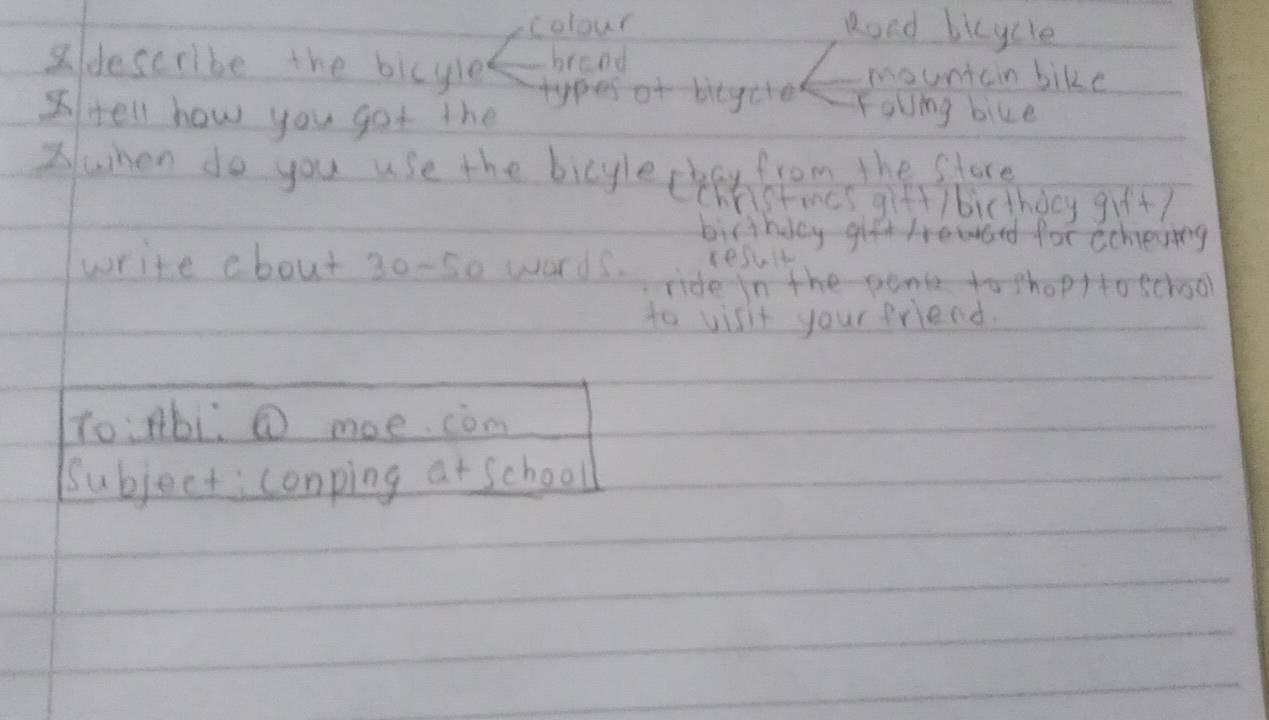 colour Road bicycle
describe the bicyle brand mountain bike
types of bicycle Folling bike
tell how you got the
when do you use the bicyle buy from the Store
christmas gift/birthday gift/
birthday gift/reward for achieving
result
write about 30-50 words.
ride in the to shop/to school
to visit your friend.
To: Abi: @ moe.com
Subject: conping at school